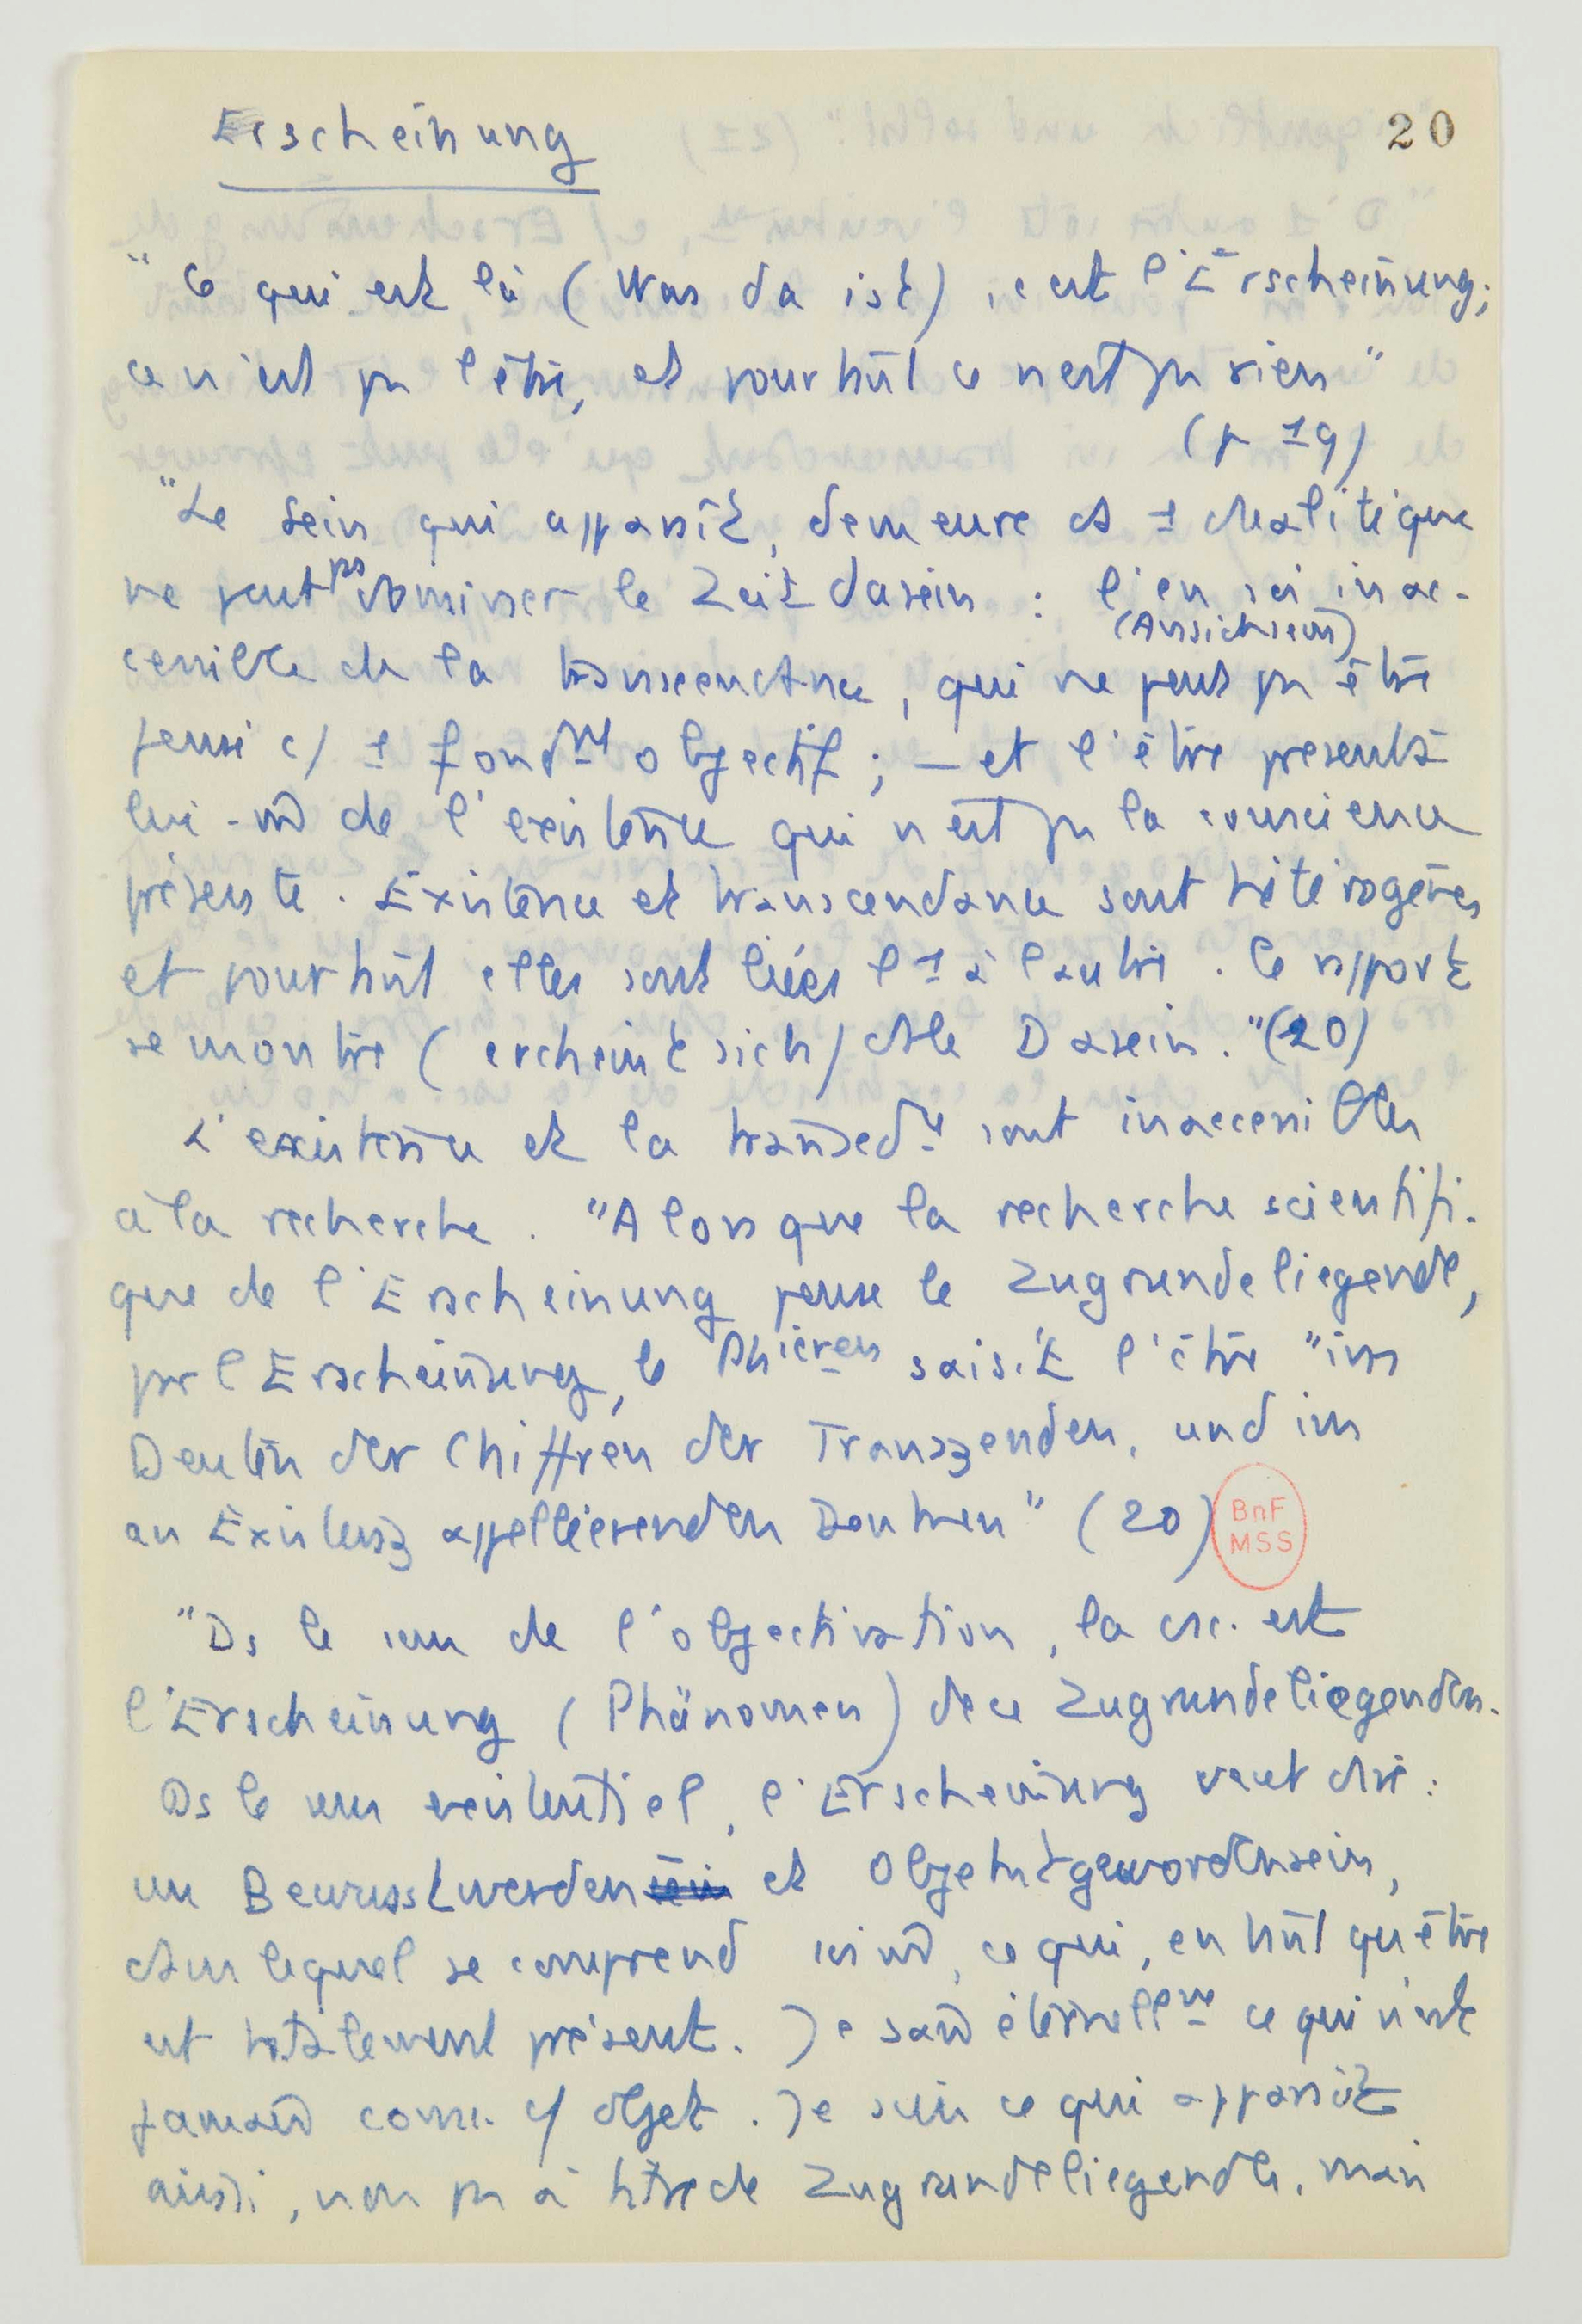 Erscheinung
20
"Ce qui est là (Was da ist) c'est l'Erscheinung;
ce n'est pas l'être, et pourtant ce n'est pas rien"
(p 19)
"Le Sein qui apparaît, demeure ds 1 dualité que
ne peut pas dominer le Zeitdasein : l'en soi inac-
(Ansichsein)
cessible de la transcendance, qui ne peut pas être
pensé c/ 1 fondmt objectif ; - et l'être présent à
lui-m de l'existence qui n'est pas la conscience
présente. Existence et transcendance sont hétérogènes
et pourtant elles sont liées l'1 à l'autre. Ce rapport
se montre (ercheint sich) ds le Dasein." (20)
L'existence et la transcdce sont inaccessibles
à la recherche. "Alors que la recherche scientifi-
que de l'Erscheinung pense le Zugrundeliegende,
pr l'Erscheinung, le saisit l'être "im
Deuten der Chiffren der Transzenden, und im
an Existenz appellierenden Denken" (20)
BnF
MSS
"Ds le sens de l'objectivation, la csc. est
l'Erscheinung (Phänomen) de ce Zugrundeliegenden.
Ds le sens existentiel, l'Erscheinung veut dire :
un Bewusstwerden et Objektgewordensein,
dans lequel se comprend soi m, ce qui, en tant qu'être
est totalement présent. Je sais éternellemt ce qui n'est
jamais conn. c/ objet. Je suis ce qui apparaît
ainsi, non pas à titre de Zugrundeliegende, mais